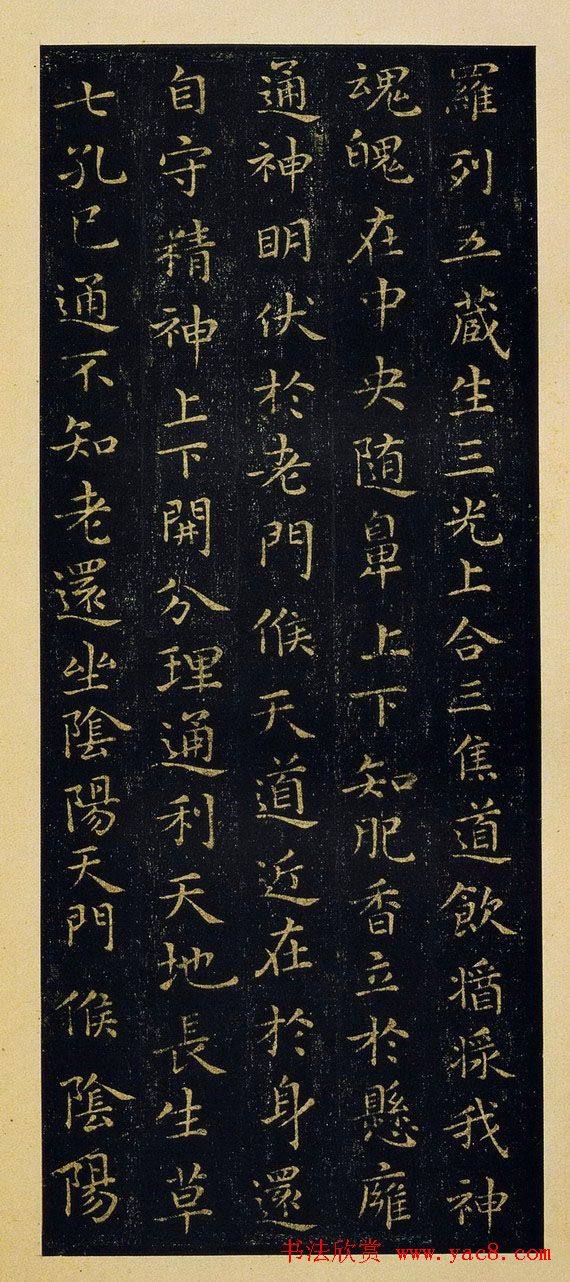 羅列五蔵生三光上合三焦道飲漿我神
魂魄在中央随鼻上下知肥香立於懸廱
通神眀伏於老門候天道近在於身還
自守精神上下開分理通利天地長生草
七孔已通不知老還坐陰陽天門候陰陽
书法欣赏 www.yac8.com